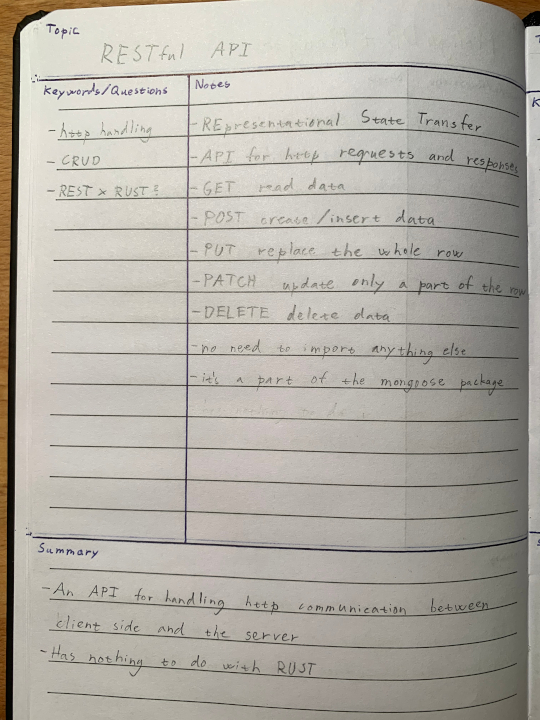 Topic
RESTful API
Keywords/Questions
Notes
- http handling
- CRUD
- REST × RUST?
- REpresentational State Transfer
- API for http requests and responses
- GET read data
- POST create/insert data
- PUT replace the whole row
- PATCH update only a part of the row
- DELETE delete data
- no need to import anything else
- it's a part of the mongoose package
Summary
- An API for handling http communication between
client side and the server
- Has nothing to do with RUST